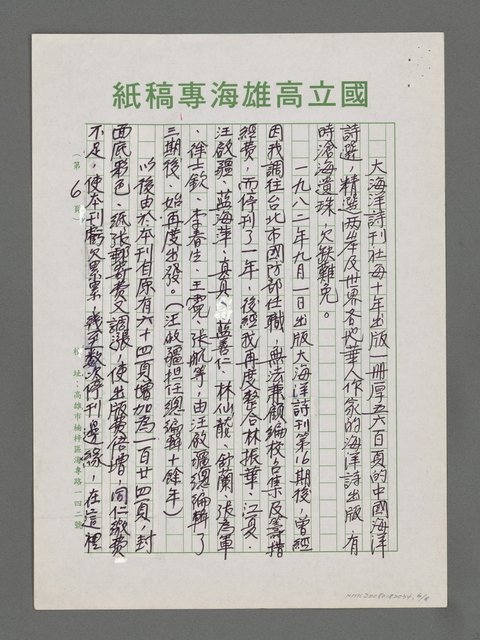 國立高雄海專稿紙
大海洋詩刊社每十年出版一冊厚五六百頁的中國海洋
詩選，精選兩岸及世界各地華人作家的海洋詩出版，有
時滄海遺珠，欠缺難免。
一九八二年九月一日出版大海洋詩刊第16期後，曾經
因我調往台北市國防部任職，無法兼顧編校、召集及籌措
經費，而停刊了一年，後經我再度整合林振華、江夏、
汪啟疆、藍海萍、真真、藍善仁、林仙龍、舒蘭、張為軍
、徐士欽、李春生、王霓、張航等，由汪啟疆總編輯了
三期後，始再度出發。（汪啟疆担任總編輯十餘年）
以後由於本刊有原有六十四頁增加為一百廿四頁，封
面底彩色、紙張郵寄費又調漲，使出版費倍增，同仁繳費
不足，使本刊虧欠累累，幾至數次停刊邊緣，在這裡
（第 6 頁）
校址：高雄市楠梓區海專路一四二號